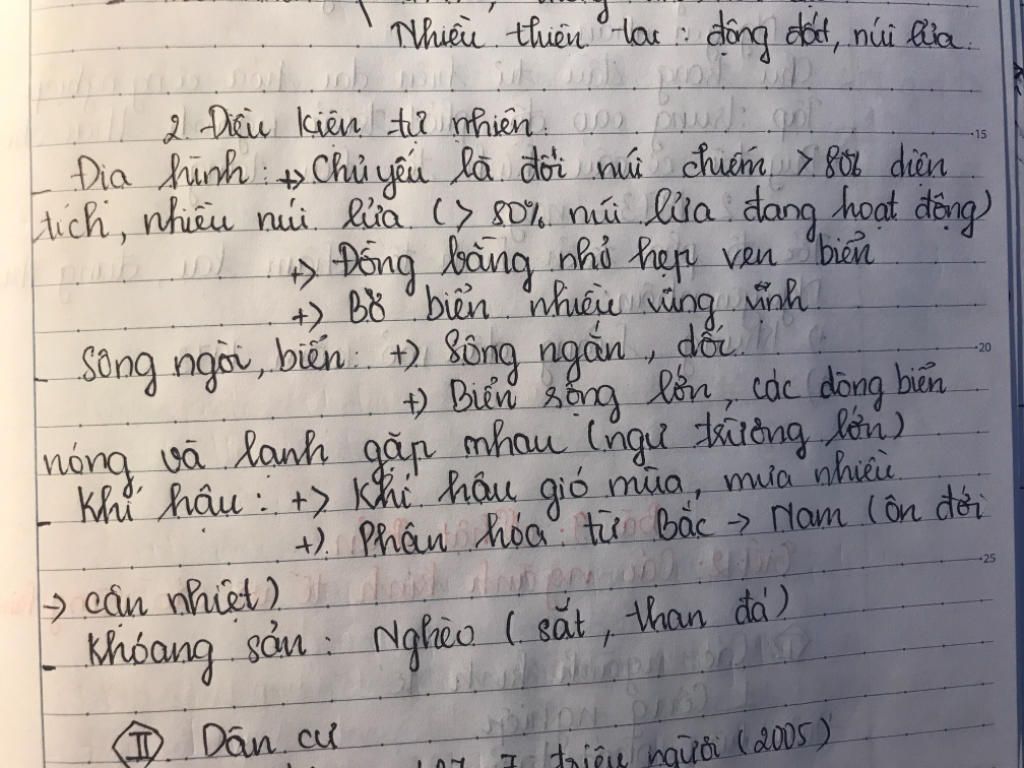 Nhiều thiên tai: động đất, núi lửa
2. Điều kiện tự nhiên
- Địa hình: +) Chủ yếu là đồi núi chiếm > 80% diện
tích, nhiều núi lửa (> 80% núi lửa đang hoạt động)
+) Đồng bằng nhỏ hẹp ven biển
+) Bờ biển nhiều vũng vịnh
- Sông ngòi, biển: +) Sông ngắn, dốc
+) Biển rộng lớn, các dòng biển
nóng và lạnh gặp nhau (ngư trường lớn)
- Khí hậu: +) Khí hậu gió mùa, mưa nhiều
+) Phân hóa từ Bắc → Nam (ôn đới
→ cận nhiệt)
- Khóang sản: Nghèo (sắt, than đá)
II Dân cư
triệu người (2005)
15
20
25